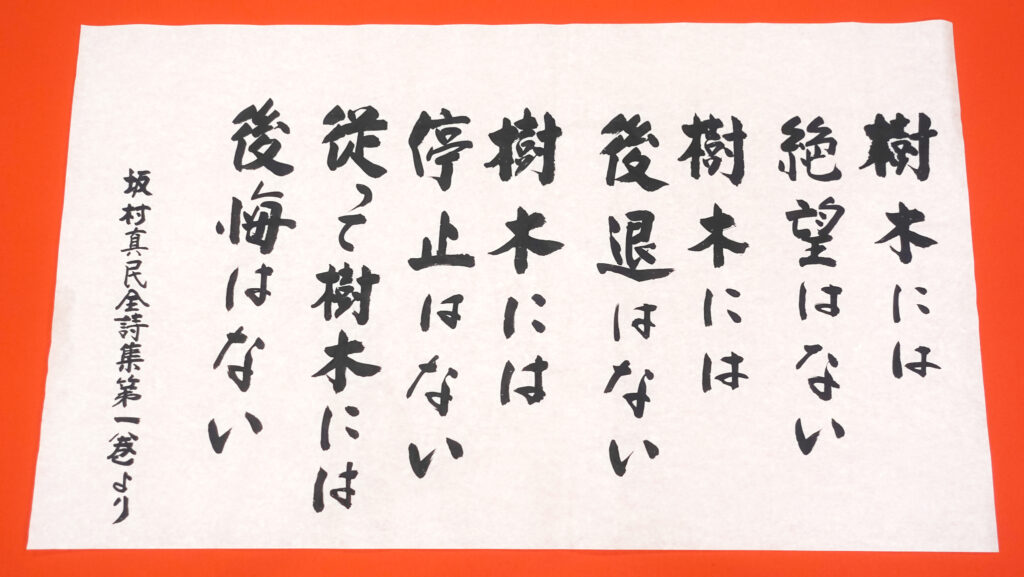 樹木には
絶望はない
樹木には
後退はない
樹木には
停止はない
従って樹木には
後悔はない
坂村真民全詩集第一巻より